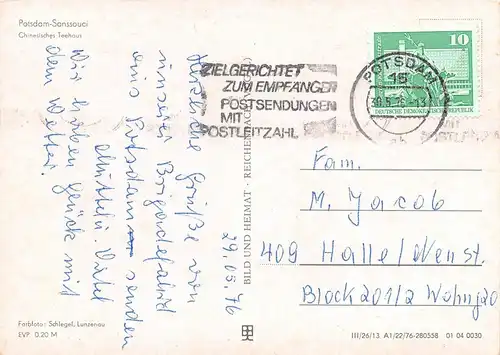 Potsdam-Sanssouci
Chinesisches Teehaus
Herzliche Grüße von
unserer Brigadefahrt
aus Potsdam senden
Mutteln. Vatel
Wir haben Glück mit
dem Wetter.
29.05.76
BILD UND HEIMAT · REICHENBACH
ZIELGERICHTET
ZUM EMPFÄNGER
POSTSENDUNGEN
MIT
POSTLEITZAHL
POTSDAM
15
10
DEUTSCHE DEMOKRATISCHE REPUBLIK
Fam.
M. Jacob
409 Halle/Neust.
Block 201/2 Wohng 20
Fotblatt: Schlegel, Lunzenau
EVP 0.20 M
III/26/13 A1/22/76-280558 01 04 0030